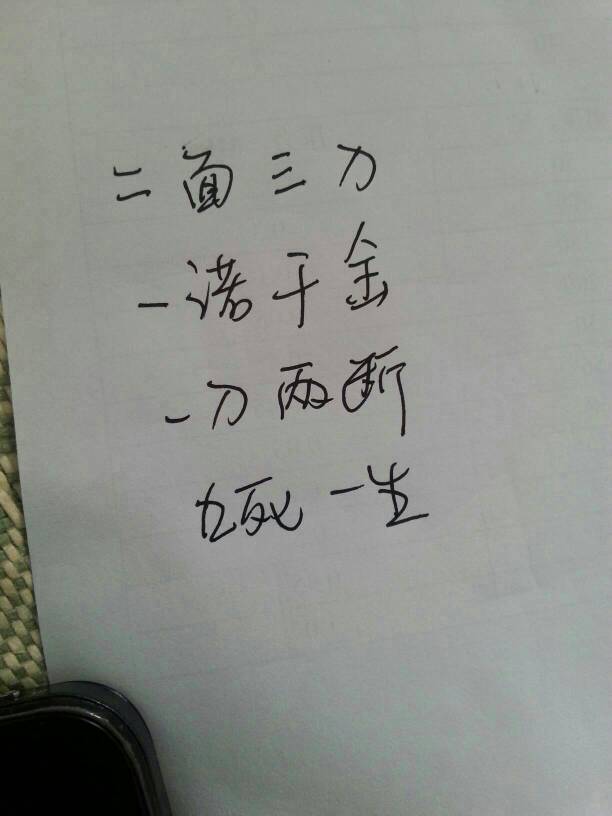 二面三刀
一诺千金
一刀两断
九死一生